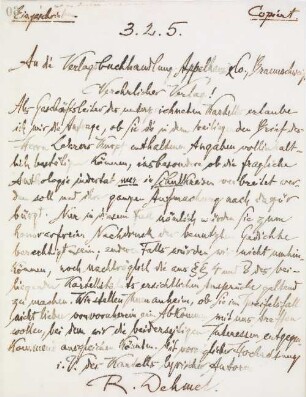 Eingeschrieben
Copirt
3.2.5.
An die Verlagsbuchhandlung Appelhans & Co, Braunschweig
Verehrlicher Verlag!
Als Geschäftsleiter des unterzeichneten Kartells erlaube
ich mir die Anfrage, ob Sie die in dem heutigen Brief des
Herrn Lehrers enthaltene Angaben vollinhalt-
lich bestätigen können, insbesondere ob die fragliche
Anthologie in der Tat nur in Schulkreisen verbreitet wer-
den soll und ihre ganze Aufmachung nach dafür
bürgt. Nur in diesem Fall nämlich würde Sie zum
honorarfreien Nachdruck der benutzten Gedichte
berechtigt sein; andern Falls würden wir nicht umhin
können, noch nachträglich die aus §§ 4 und des bei-
liegenden Kartellstatuts ersichtlichen Ansprüche geltend
zu machen. Wir stellen Ihnen anheim, ob Sie im Zweifelsfall
nicht lieber von vornherein ein Abkommen mit uns treffen
wollen, bei dem wir die beiderseitigen Interessen entgegen-
kommend ausgleichen könnten. Mit vorzüglicher Hochachtung
i. V. des Kartells lyrischer Autoren
R. Dehmel.